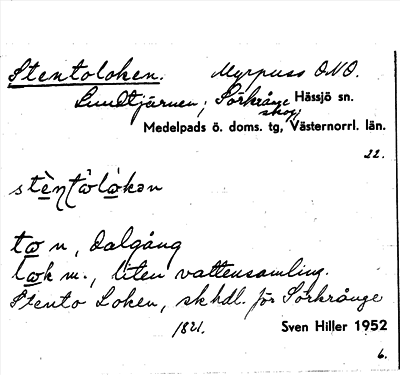 Stentoloken. Myrpuss ONO.
Lundtjärnen, Sörkrånge Hässjö sn.
skog,
Medelpads ö. doms. tg, Västernorrl. län.
22.
stèn̥tò̀lò̀kən
tω n, dalgång
lωk m., liten vattensamling.
Stento Loken, sk hdl. för Sörkrånge
1821. Sven Hiller 1952
6.